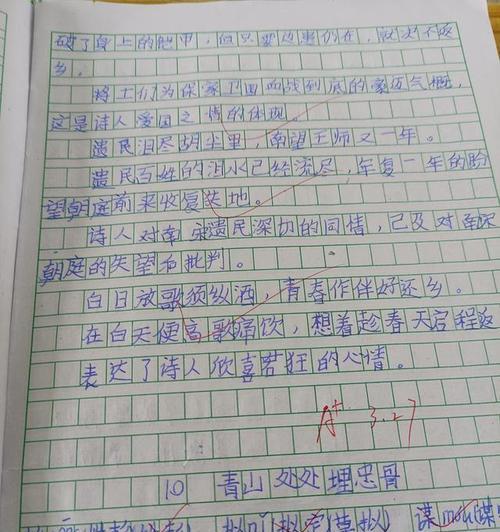 破了身上的铠甲，但只要边患仍在，就决不返
乡。
将士们为保家卫国血战到底的豪迈气概，
这是诗人爱国之情的体现。
遗民泪尽胡尘里，南望王师又一年。
遗民百姓的泪水已经流尽，年复一年的盼
望朝庭前来收复失地。
诗人对南宋遗民深切的同情，已及对南宋
朝庭的失望和批判。
白日放歌须纵酒，青春作伴好还乡。
在白天便高歌痛饮，想着趁春天启程返
表达了诗人欣喜若狂的心情。
A+ 3.27
10 青山处处埋忠骨
谋 móu 谋